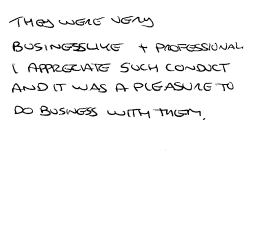 THEY WERE VERY
BUSINESSLIKE + PROFESSIONAL.
I APPRECIATE SUCH CONDUCT
AND IT WAS A PLEASURE TO
DO BUSINESS WITH THEM.